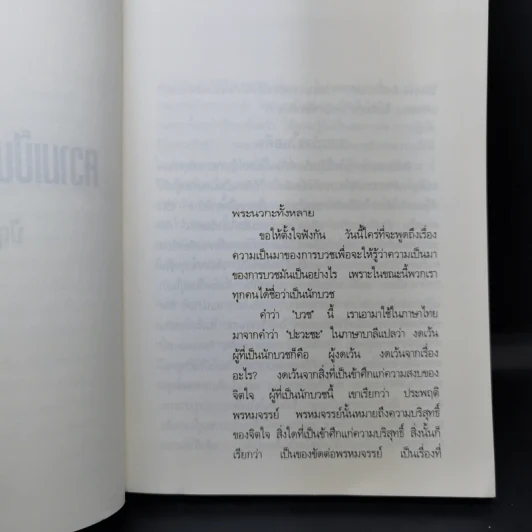 พระนวกะทั้งหลาย
ขอให้ตั้งใจฟังกัน วันนี้ใคร่ที่จะพูดถึงเรื่อง
ความเป็นมาของการบวชเพื่อจะให้รู้ว่าความเป็นมา
ของการบวชมันเป็นอย่างไร เพราะในขณะนี้พวกเรา
ทุกคนได้ชื่อว่าเป็นนักบวช
คำว่า "บวช" นี้ เราเอามาใช้ในภาษาไทย
มาจากคำว่า "ปะวะชะ" ในภาษาบาลีแปลว่า งดเว้น
ผู้ที่เป็นนักบวชก็คือ ผู้งดเว้น งดเว้นจากเรื่อง
อะไร? งดเว้นจากสิ่งที่เป็นข้าศึกแก่ความสงบของ
จิตใจ ผู้ที่เป็นนักบวชนี้ เขาเรียกว่า ประพฤติ
พรหมจรรย์ พรหมจรรย์นั้นหมายถึงความบริสุทธิ์
ของจิตใจ สิ่งใดที่เป็นข้าศึกแก่ความบริสุทธิ์ สิ่งนั้นก็
เรียกว่า เป็นของขัดต่อพรหมจรรย์ เป็นเรื่องที่